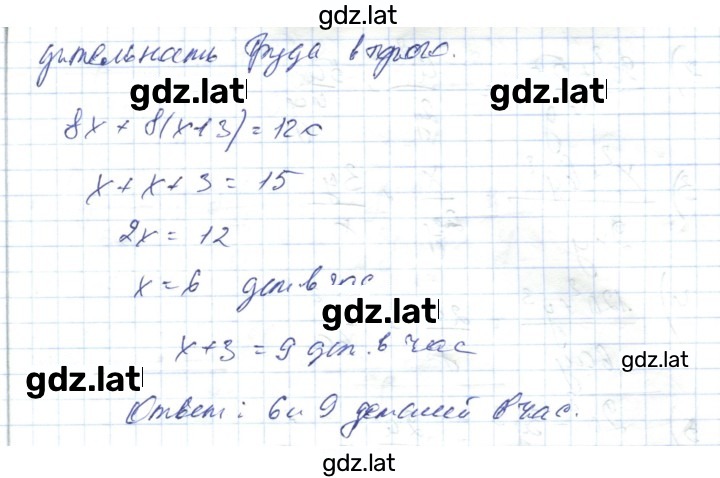 gdz.lat
дительность труда второго.
gdz.lat gdz.lat
8x + 8(x+3) = 120
x + x + 3 = 15
2x = 12
x = 6 дет. в час
gdz.lat
x+3 = 9 дет. в час
gdz.lat
gdz.lat
Ответ: 6 и 9 деталей в час.
gdz.lat